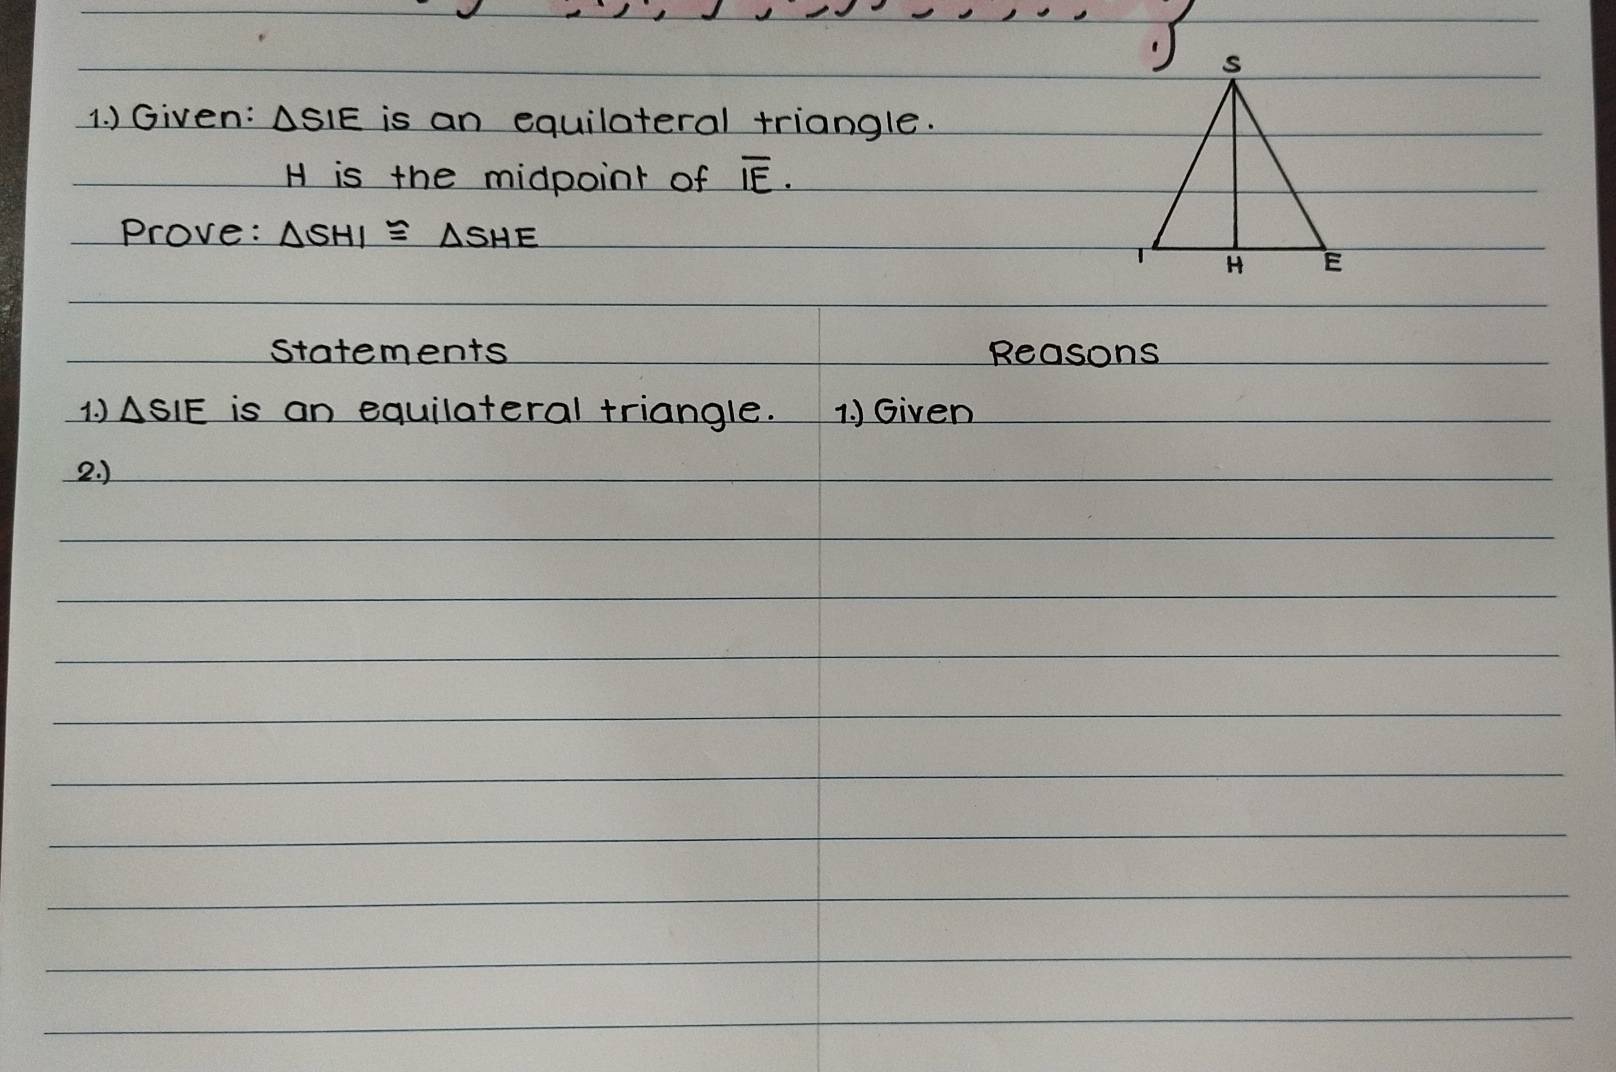 1.) Given: △SIE is an equilateral triangle.
H is the midpoint of I̅E̅.
Prove: △SHI ≅ △SHE
S
I
H
E
Statements
Reasons
1.) △SIE is an equilateral triangle.
1.) Given
2.)